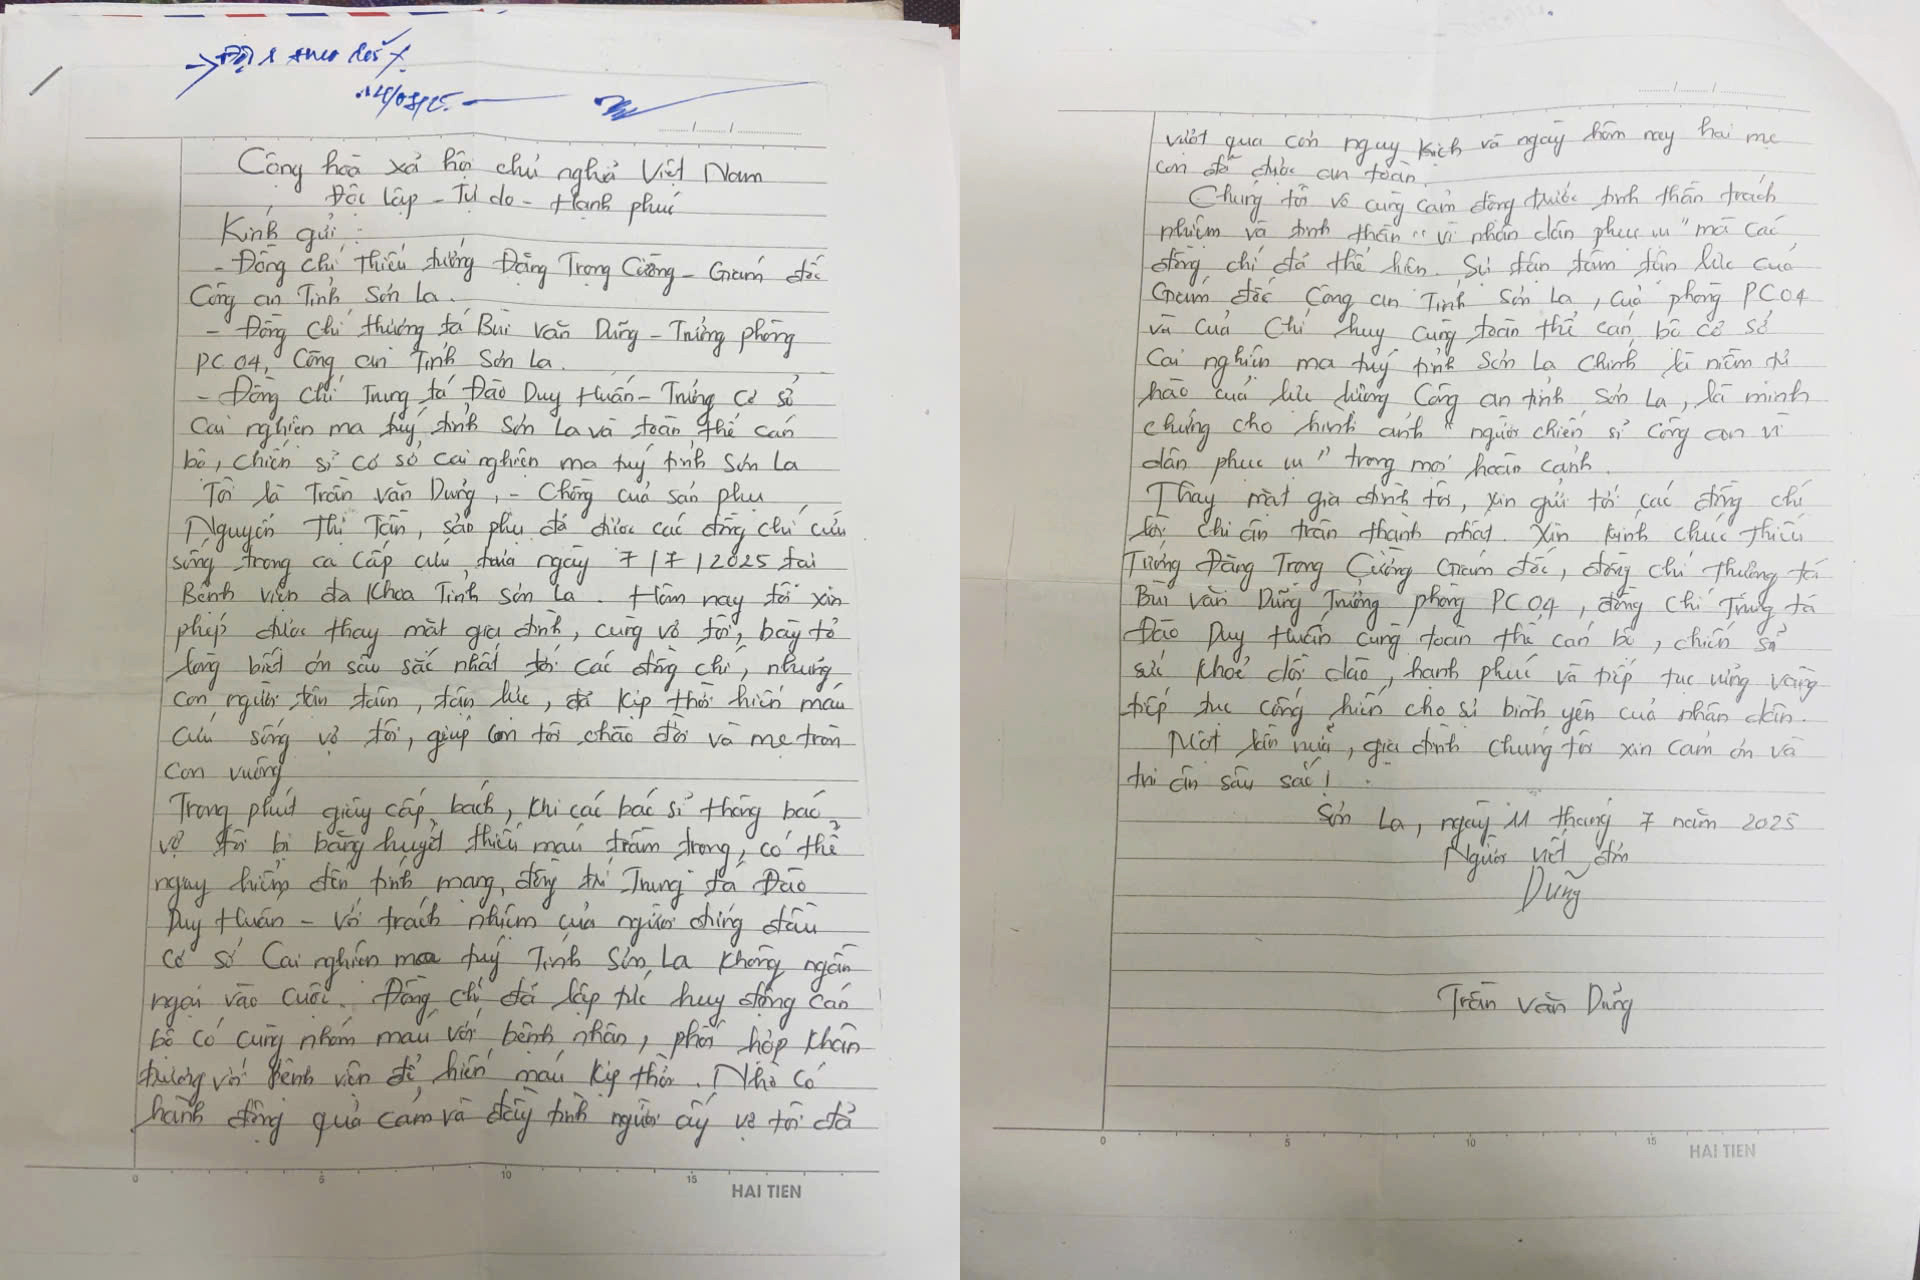 → Đội 1 theo dõi
14/08/25.
Cộng hoà xã hội chủ nghĩa Việt Nam
Độc lập - Tự do - Hạnh phúc
Kính gửi :
- Đồng chí Thiếu tướng Đặng Trọng Cường - Giám đốc
Công an Tỉnh Sơn La.
- Đồng chí thượng tá Bùi Văn Dũng - Trưởng phòng
PC 04, Công an Tỉnh Sơn La.
- Đồng chí Trung tá Đào Duy Huấn - Trưởng Cơ sở
Cai nghiện ma tuý tỉnh Sơn La và toàn thể cán
bộ, chiến sĩ cơ sở cai nghiện ma tuý tỉnh Sơn La
Tôi là Trần Văn Dũng, - Chồng của sản phụ
Nguyễn Thị Tấn, sản phụ đã được các đồng chí cứu
sống trong ca cấp cứu, đưa ngày 7/7/2025 tại
Bệnh viện đa khoa Tỉnh Sơn La. Hôm nay tôi xin
phép được thay mặt gia đình, cùng vợ tôi, bày tỏ
lòng biết ơn sâu sắc nhất tới các đồng chí, những
con người tận tâm, tận lực, đã kịp thời hiến máu
cứu sống vợ tôi, giúp con tôi chào đời và mẹ tròn
con vuông
Trong phút giây cấp bách, khi các bác sĩ thông báo
vợ tôi bị băng huyết thiếu máu trầm trọng, có thể
nguy hiểm đến tính mạng, đồng trí Trung tá Đào
Duy Huấn - với trách nhiệm của người đứng đầu
cơ sở Cai nghiện ma tuý Tỉnh Sơn La không ngần
ngại vào cuộc. Đồng chí đã lập tức huy động cán
bộ có cùng nhóm máu với bệnh nhân, phối hợp khẩn
trương với bệnh viện để hiến máu kịp thời. Nhờ có
hành động quả cảm và đầy tình người ấy vợ tôi đã
vượt qua cơn nguy kịch và ngày hôm nay hai mẹ
con đã được an toàn.
Chúng tôi vô cùng cảm động trước tinh thần trách
nhiệm và tinh thần "vì nhân dân phục vụ" mà các
đồng chí đã thể hiện. Sự tận tâm tận lực của
Giám đốc Công an Tỉnh Sơn La, của phòng PC04
và của Chỉ huy cùng toàn thể cán bộ cơ sở
Cai nghiện ma tuý tỉnh Sơn La chính là niềm tự
hào của lực lượng Công an tỉnh Sơn La, là minh
chứng cho hình ảnh "người chiến sĩ Công an vì
dân phục vụ" trong mọi hoàn cảnh.
Thay mặt gia đình tôi, xin gửi tới các đồng chí
lời chi ân trân thành nhất. Xin kính chúc Thiếu
Tướng Đặng Trọng Cường Giám đốc, đồng chí Thượng tá
Bùi Văn Dũng Trưởng phòng PC04, đồng chí Trung tá
Đào Duy Huấn cùng toàn thể cán bộ, chiến sĩ
sức khoẻ dồi dào, hạnh phúc và tiếp tục vững vàng
tiếp tục cống hiến cho sự bình yên của nhân dân.
Một lần nữa, gia đình chúng tôi xin cảm ơn và
tri ân sâu sắc!
Sơn La, ngày 11 tháng 7 năm 2025
Người viết đơn
Dũng
Trần Văn Dũng
0 5 10 15
HAI TIEN
0 5 10 15
HAI TIEN